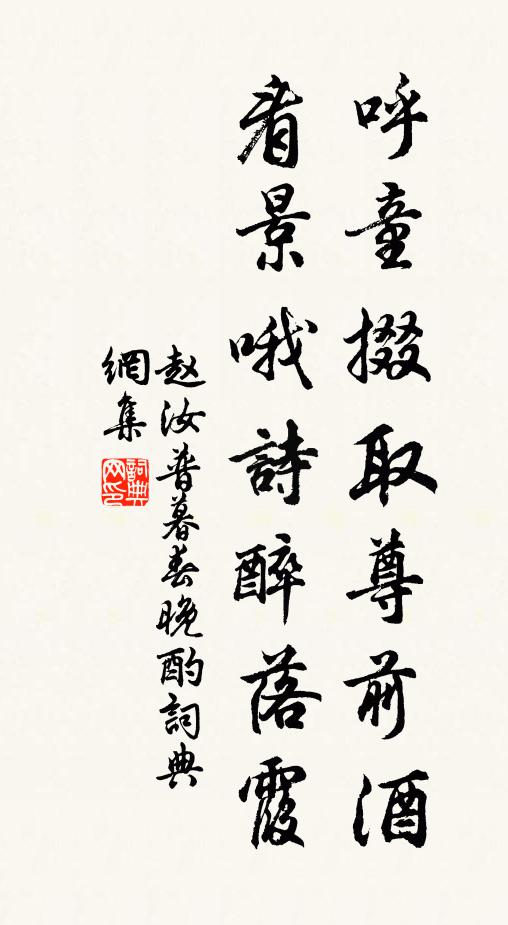 呼童掇取尊前酒
看景哦詩醉落霞
赵汝普暮春晚酌詞典
網集
詞典
网印